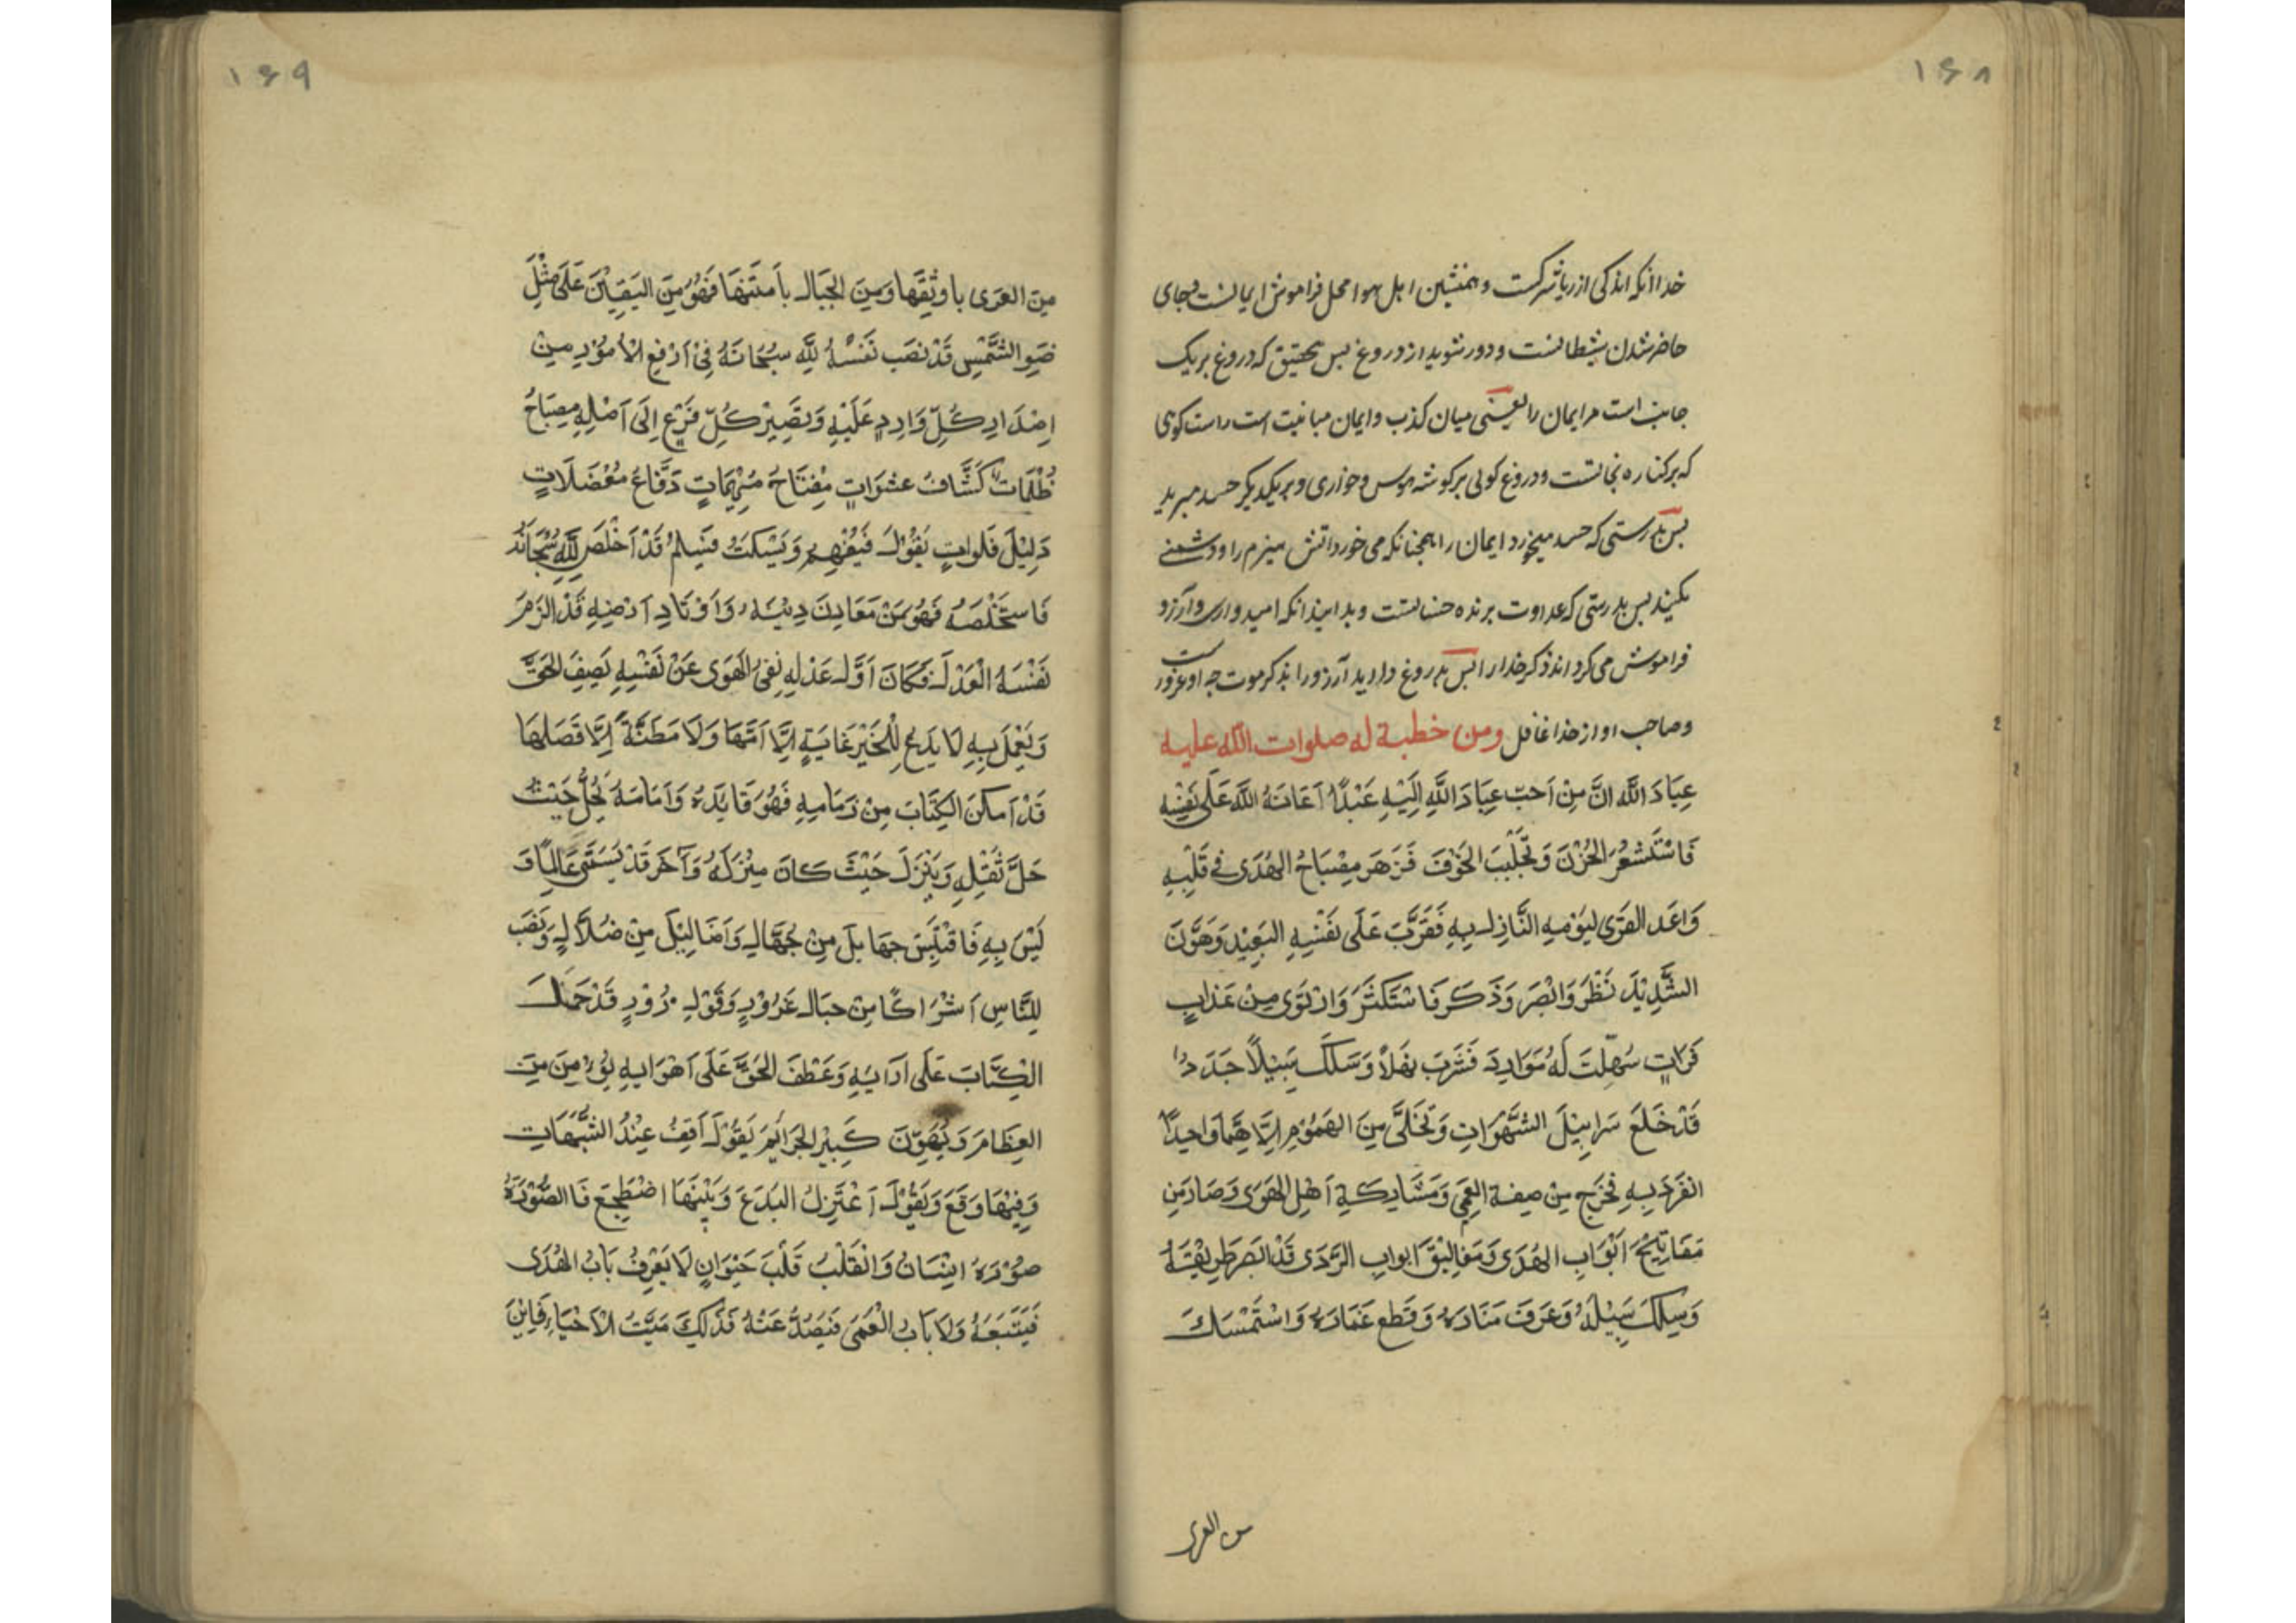 ۱۶۸
خدا آنکه اندکی از ریا شرکست و همنشین اهل هوا محل فراموش ایمانست و جای
حاضر شدن شیطانست و دور شوید از دروغ بس بتحقیق که دروغ بر یک
جانب است مر ایمان را یعنی میان کذب و ایمان مباینت است راست کوی
که بر کناره نجاتست و دروغ کوئی بر کوشه هوس و خواری و بر یکدیکر حسد مبرید
بس بدرستی که حسد میخورد ایمان را همچنانکه می خورد اتش هیزم را و دشمنی
مکنید بس بدرستی که عداوت برنده حسناتست و بدانید انکه امیدواری و آرزو
فراموش می کرداند ذکر خدا را بس بدروغ دارید آرزو را بذکر موت چه او غرور است
و صاحب او از خدا غافل ومن خطبة له صلوات الله عليه
عِبَادَ اللَّه انَّ مِنْ اَحبّ عِبَادَ اللَّهِ اِلَيْهِ عَبْدًا اَعَانَهُ اللَّه عَلَى نَفْسِهِ
فَاسْتَشْعُرَ الحُزْنَ وَتَجَلْبَبَ الخَوْفَ فَزَهَرَ مِصْبَاحُ الهُدَى فى قَلْبِهِ
وَاعَدَ القِرَى لِيَوْمِهِ النَّازِلِ بِهِ فَقَرَّبَ عَلَى نَفْسِهِ البَعِيْدَ وَهَوَّنَ
الشَّدِيْدَ نَظَرَ وَابْصَرَ وَذَكَرَ فَاسْتَكْثَرَ وَارْتَوَى مِنْ عَذبٍ
فَرَاتٍ سُهِّلَتَ لَهُ مَوَارِدَه فَشَرِبَ نَهَلاً وَسَلَكَ سَبِيْلاً جَدَدًا
قَدْ خَلَعَ سَرَابِيْلَ الشَّهَوَاتِ وَتَخَلَّى مِنَ الهُمُوْمِ اِلَّا هَمًّا وَاحِدًا
انفَرَدَ بِهِ فَخَرَج مِنْ صِفة العَمَى وَمَشَارِكَةِ اَهْلِ الهَوَى وَصَارَ مِن
مَفَاتِيْحَ اَبْوَابِ الهُدَى وَمَغَالِيْقَ اَبوابِ الرَّدَى قَدْ ابْصَرَ طَرِيْقَتَهُ
وَسَلَكَ سَبِيْلَهُ وَعَرَفَ مَنَارَهُ وَقَطَعَ غَمَارَهُ وَاسْتَمْسَكَ
من العرى
۱۶۹
مِنَ العُرَى بِاوثَقِهَا وَمِنَ الجِبَالِ بِاَمتَنِهَا فَهُوَ مِنَ اليَقِيْنَ عَلَى مِثْلِ
ضَوِ الشَّمْسِ قَدْ نَصَب نَفْسَهُ لِلَّه سُبْحَانَهُ فِىْ اَرْفعِ الْاُمُوْرِ مِنْ
اِصْدَارِ كُلِّ وَارِدٍ عَلَيْهِ وَتَصْيِيْرِ كُلِّ فَرْعٍ اِلَى اَصْلِهِ مِصْبَاحُ
ظُلُمَاتٍ كَشَّافُ عشَوَاتٍ مِفْتَاحُ مُبْهَمَاتٍ دَفَّاعُ مُعْضَلَاتٍ
دَلِيْلَ فَلوَاتٍ يَقُوْلُ فَيُفْهِمُ وَيَسْكُتُ فَيَسْلَمُ قَدْ اَخْلَصَ لِلَّهِ سُبْحَانَهُ
فَاسْتَخْلَصَهُ فَهُوَ مِنْ مَعَادِنَ دِيْنِهِ وَاَوْتَادِ اَرْضِهِ قَدْ الزَمَ
نَفْسَهُ الْعَدْلَ فَكَانَ اَوَّلَ عَدْلِهِ نَفىُ الهَوَى عَنْ نَفْسِهِ يَصِفُ الحَقَّ
وَيَعْمَلُ بِهِ لَا يَدَعُ لِلْخَيْرِ غَايَةٍ اِلَّا اَمَّهَا وَلَا مَظَنَّةً اِلَّا قَصَدَهَا
قَدْ اَمكَنَ الكِتَابَ مِنْ زِمَامِهِ فَهُوَ قَايِدُهُ وَاَمَامَهُ يَحُلُّ حَيْثُ
حَلَّ ثَقَلِهِ وَيَنْزِلُ حَيْثُ كَانَ مَنْزِلَهُ وَآخَرَ قَدْ يُسَمَّى عَالِمًا وَ
لَيْسَ بِهِ فَاقْتَبَسَ جَهَايلَ مِنْ جُهَّالٍ وَاَضَالِيْلَ مِنْ ضُلاَّلٍ وَنَصَبَ
لِلنَّاسِ اَشْرَاكًا مِنْ حبَالِ غَرُوْرٍ وَقَوْلٍ زُوْرٍ قَدْ حَمَلَ
الْكِتَابَ عَلَى ارَايِهِ وَعَطفَ الحَقَّ عَلَى اَهْوَايِهِ يُؤمِنَ مِنَ
العِظَامَ وَيُهَوِّنَ كَبِيْرَ الجَرَائِمَ يَقُوْلُ اَقِفُ عِنْدَ الشُّبُهَاتِ
وَفِيْهَا وَقَعَ وَيَقُوْلُ اَعْتَزِلُ البِدَعَ وَبَيْنَهَا اضْطَجَعَ فَالصُّوْرَةُ
صُوْرَةُ اِنْسَانٍ وَالْقَلْبُ قَلْبُ حَيْوَانٍ لَا يَعْرِفُ بَابُ الهُدَى
فَيَتَّبِعَهُ وَلَا بَابُ الْعَمَى فَيَصُدُّ عَنْهُ فَذَلِكَ مَيِّتُ الْاَحْيَاءِ فَاَيْنَ